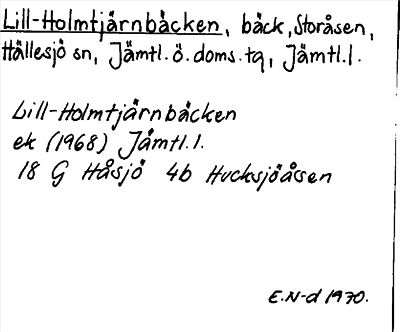 Lill-Holmtjärnbäcken, bäck, Storåsen,
Hällesjö sn, Jämtl.ö.doms.tg, Jämtl.l.
Lill-Holmtjärnbäcken
ek (1968) Jämtl.l.
18 G Håsjö 4b Hucksjöåsen
E.N-d 1970.